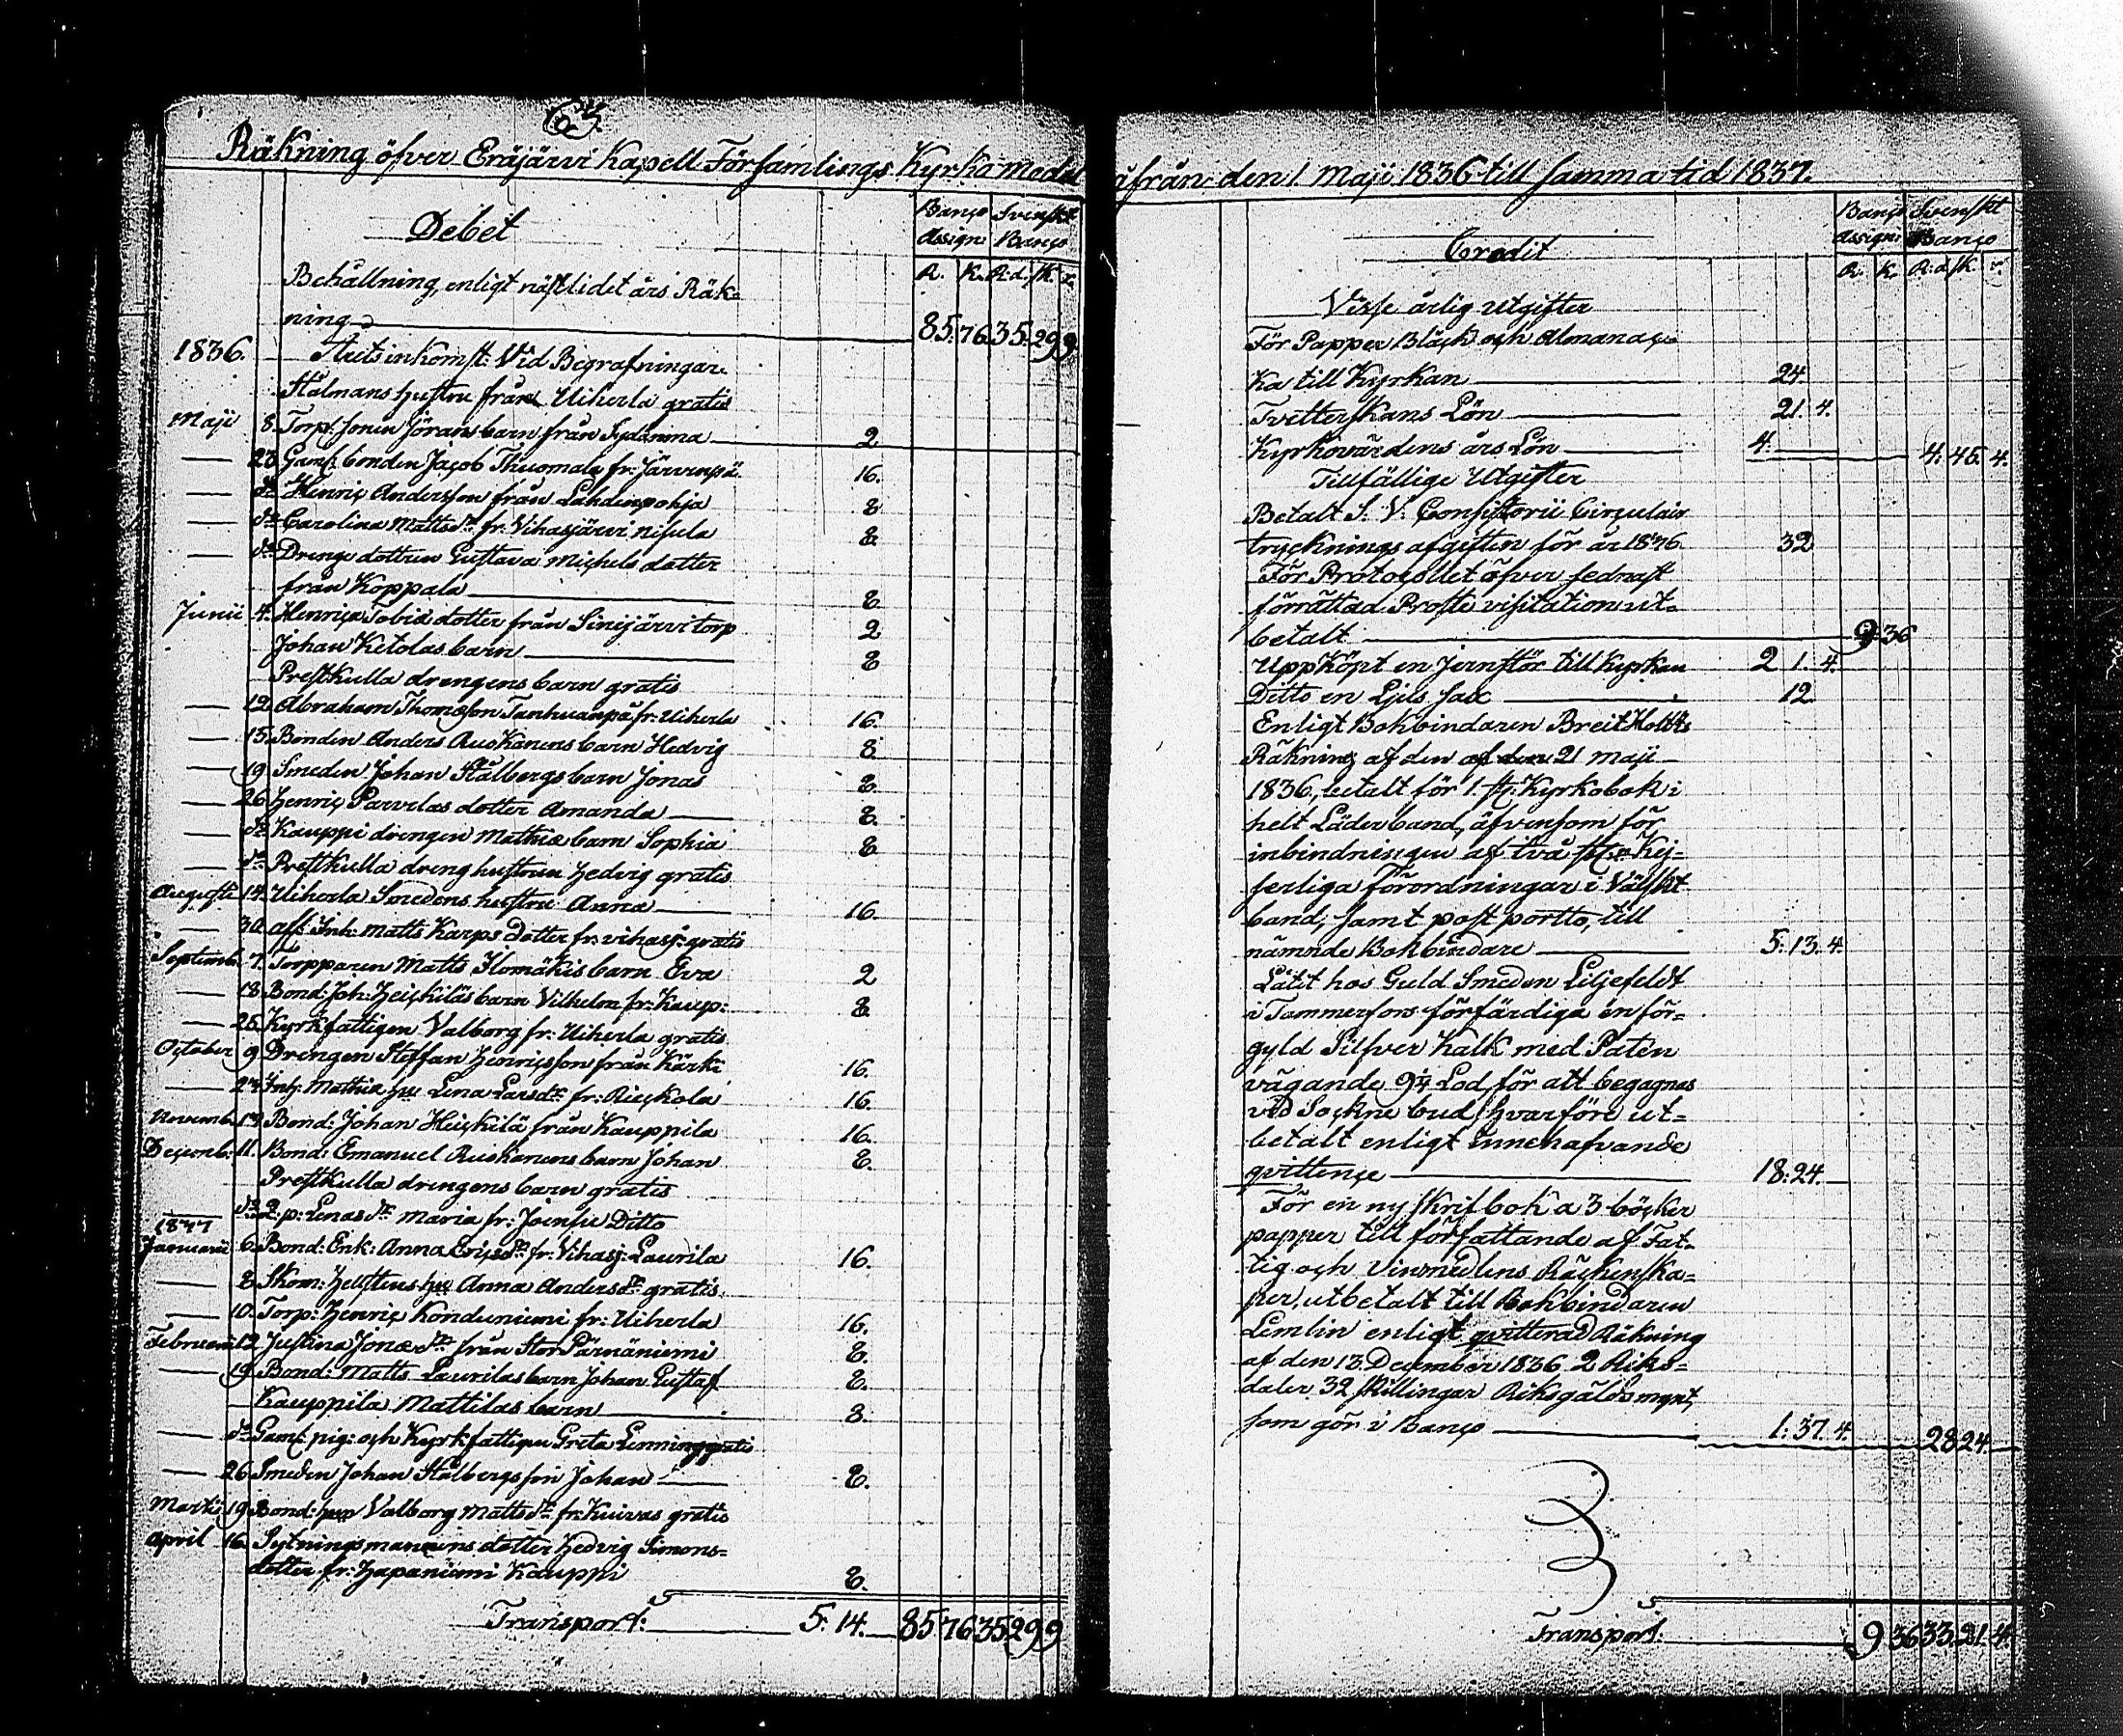 63.
Räkning öfver Eräjärvi Kapell Församlings Kyrko medel
Debet
Banço Assign:
Svenskt Banço
R. K. R:d. sk. r.
Behållning, enligt nästlidet års Räk-
ning 85. 76 35. 29 9
1836. Årets inkomst: Vid Begrafningar.
Stålmans hustru från Uiherla gratis
Maji 8. Torp: sonen Jörans barn från Sydänma 2
— 23 Gaml: bonden Jacob Thuomala fr: Järvenpä 16.
— do Henric Andersson från Lahdenpohja 8
— do Carolina Mattsdr fr: Vihasjärvi Nisula 8
— do Drenge dottren Gustava Michels dotter
från Koppala 8
Junii 4. Henrica Tobiæ dotter från Sinejärvi torp 2
Johan Ketolas barn 8
Prestkulla drengens barn gratis
— 12 Abraham Thomæson Tanhuanpä fr: Uiherla 16.
— 15. Bonden Anders Ruskanens barn Hedvig 8.
— 19 Smeden Johan Stålbergs barn Jonas 8.
— 26 Henric Parvelas dotter Amanda 8.
— do Kauppi drengen Mathiæ barn Sophia 8
— do Prestkulla dreng hustrun Hedvig gratis
Augusti 14. Uiherla Smedens hustru Anna 16
— 30. aff: Inh: Matts Karps dotter fr: vihasj: gratis
Septemb: 7. Torpparen Matts Ilomäkis barn Eva 2
— 18 Bond: Joh: Heickiläs barn Vilhelm fr: Kaup: 8
— 25. Kyrkfattigen Valborg fr: Uiherla gratis
October 9 Drengen Steffan Henricsson från Kärki 16.
— 23 Inh: Mathiæ hu: Lena Larsdr fr: Rieckola 16.
Novemb. 13 Bond: Johan Heickilä från Kauppila 16.
Decemb: 11. Bond: Emanuel Ruskanens barn Johan 8.
Prestkulla drengens barn gratis
— do Q: p: Lenas dr Maria fr: Joensu Ditto
1837
Januarii 6 Bond: Enk: Anna Ericsdr fr: Vihasj: Laurila 16.
— 8 Skom: Hellstens hu: Anna Andersdr gratis.
— 10. Torp: Henric Konduniemi fr: Uiherla 16.
Februarii 12 Justina Jonædr från Stor Pärnäniemi 8.
— 19 Bond: Matts Laurilas barn Johan Gustaf 8.
Kauppila Mattilas barn 8.
— do Gaml. pig: och Kyrkfattigen Greta Lenning gratis
— 26 Smeden Johan Stålbergs son Johan 8.
Martii 19 Bond: hu: Valborg Mattsdr fr: Kuivas gratis
April 16. Sytningsmannens dotter Hedvig Simons-
dotter fr: Hapaniemi Kauppi 8.
Transport: 5. 14. 85 76 35 29 9
ifrån den 1 Maji 1836 till samma tid 1837.
Credit
Banço Assign:
Svenskt Banço
R. K. R:d sk. r.
Visse årlig utgifter
För Papper Bläck och Almanac-
ka till Kyrkan 24.
Tvetterskans Lön 21. 4.
Kyrkovärdens års Lön 4. 4. 45. 4.
Tillfällige Utgifter
Betalt S. V. Consistorii Circulair
trycknings afgiften för år 1836. 32
För Protocollet öfver sednast
förrättad Proste visitation ut-
betalt 9 36
Uppköpt en Jernstör till Kyrkan 2 1. 4.
Ditto en Ljus sax 12
Enligt Bokbindaren BreitHolts
Räkning af den af den 21 maji
1836, betalt för 1. st: Kyrkobok i
helt Läderband, äfvensom för
inbindningen af två st: Kej-
serliga Förordningar i Välskt
band, samt post portto, till
nämnde Bokbindare 5. 13. 4.
Låtit hos Guld Smeden Liljefeldt
i Tammerfors förfärdiga en för-
gyld Silfver Kalk med Patén
vägande 9¼ Lod, för att begagnas
vid Sockne bud, hvarföre ut-
betalt enligt innehafvande
qvittençe 18. 24.
För en ny skrifbok a 3 böcker
papper till författande af Fat-
tig och Vinmedlens Räckenska-
per, utbetalt till Bokbindaren
Lemlin enligt qvitterad Räkning
af den 13 December 1836 2 Riks-
daler 32 skillingar Riksgälds mynt,
som gör i Banço 1. 37. 4. 28 24.
Transport: 9 36 33. 21. 4.